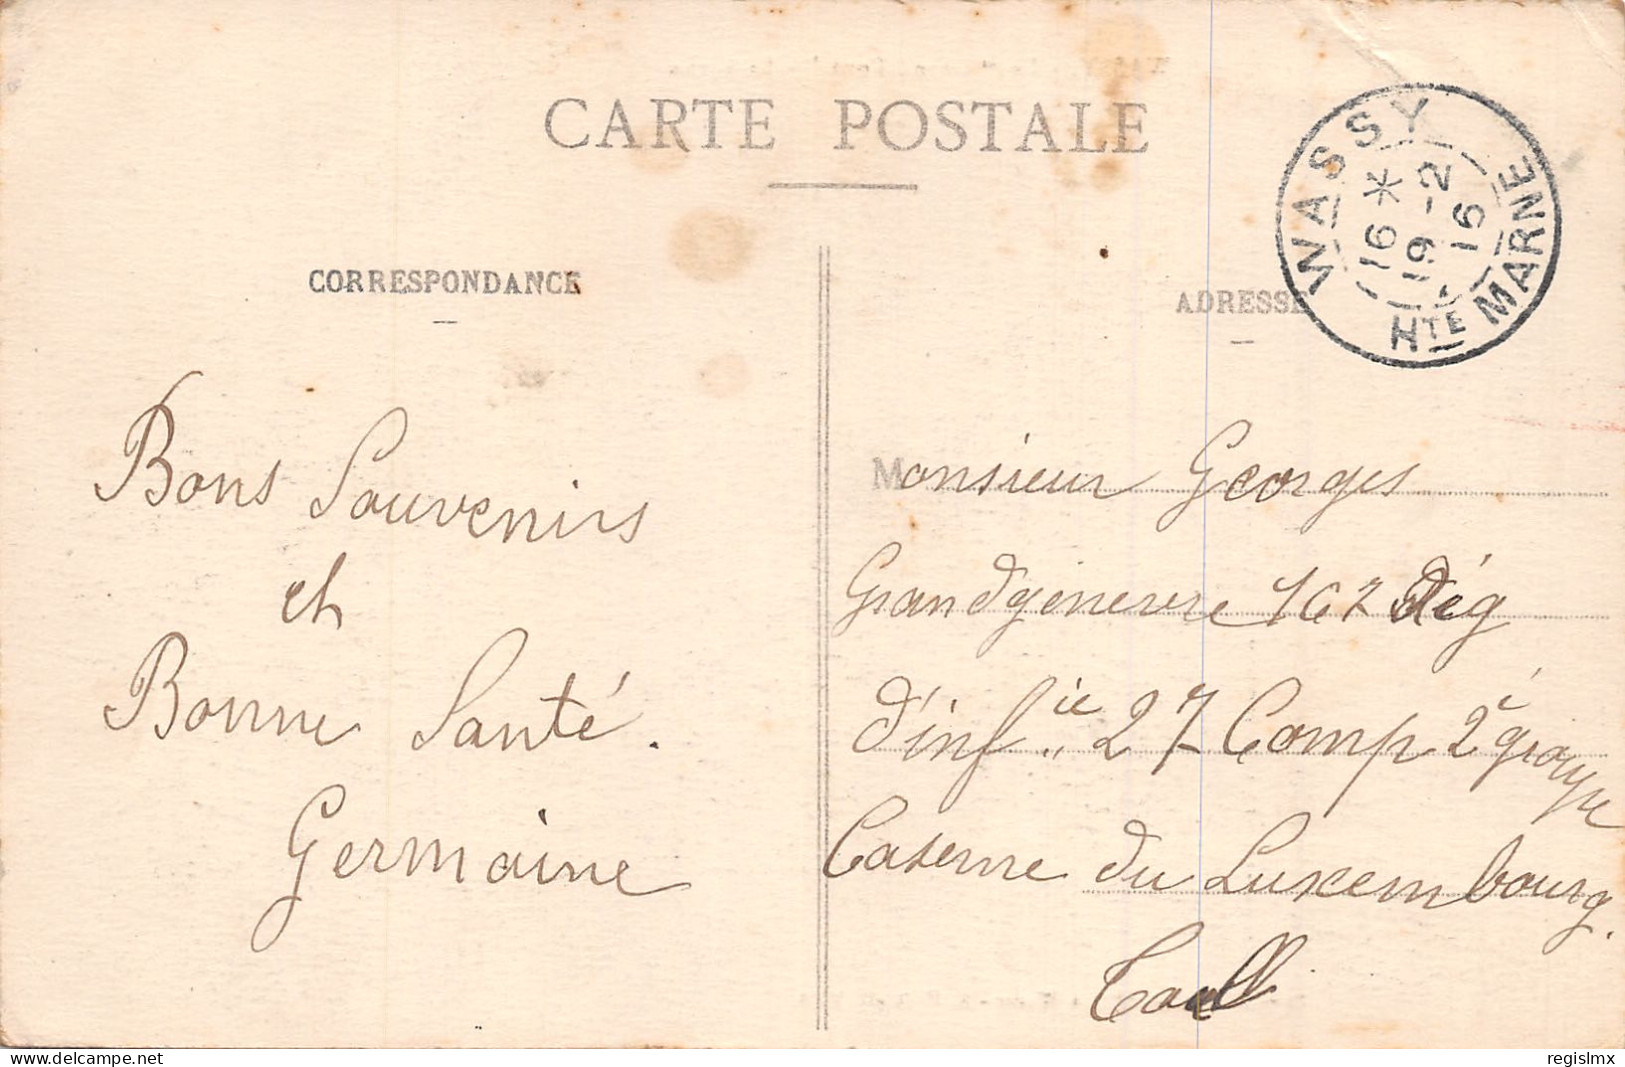 CARTE POSTALE
CORRESPONDANCE
ADRESSE
WASSY
16 *
19 - 2
16
HTE MARNE
Bons Souvenirs
et
Bonne Santé.
Germaine
Monsieur Georges
Grandgenevre 167 Rég
d'inf.ie 27 Comp 2e groupe
Caserne du Luxembourg.
Toul
regislmx